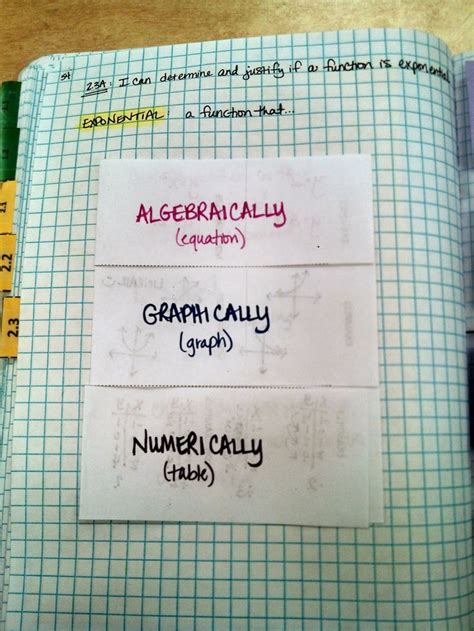 st
23A: I can determine and justify if a function is exponential
EXPONENTIAL: a function that...
ALGEBRAICALLY
(equation)
GRAPHICALLY
(graph)
NUMERICALLY
(table)
2.1
2.2
2.3